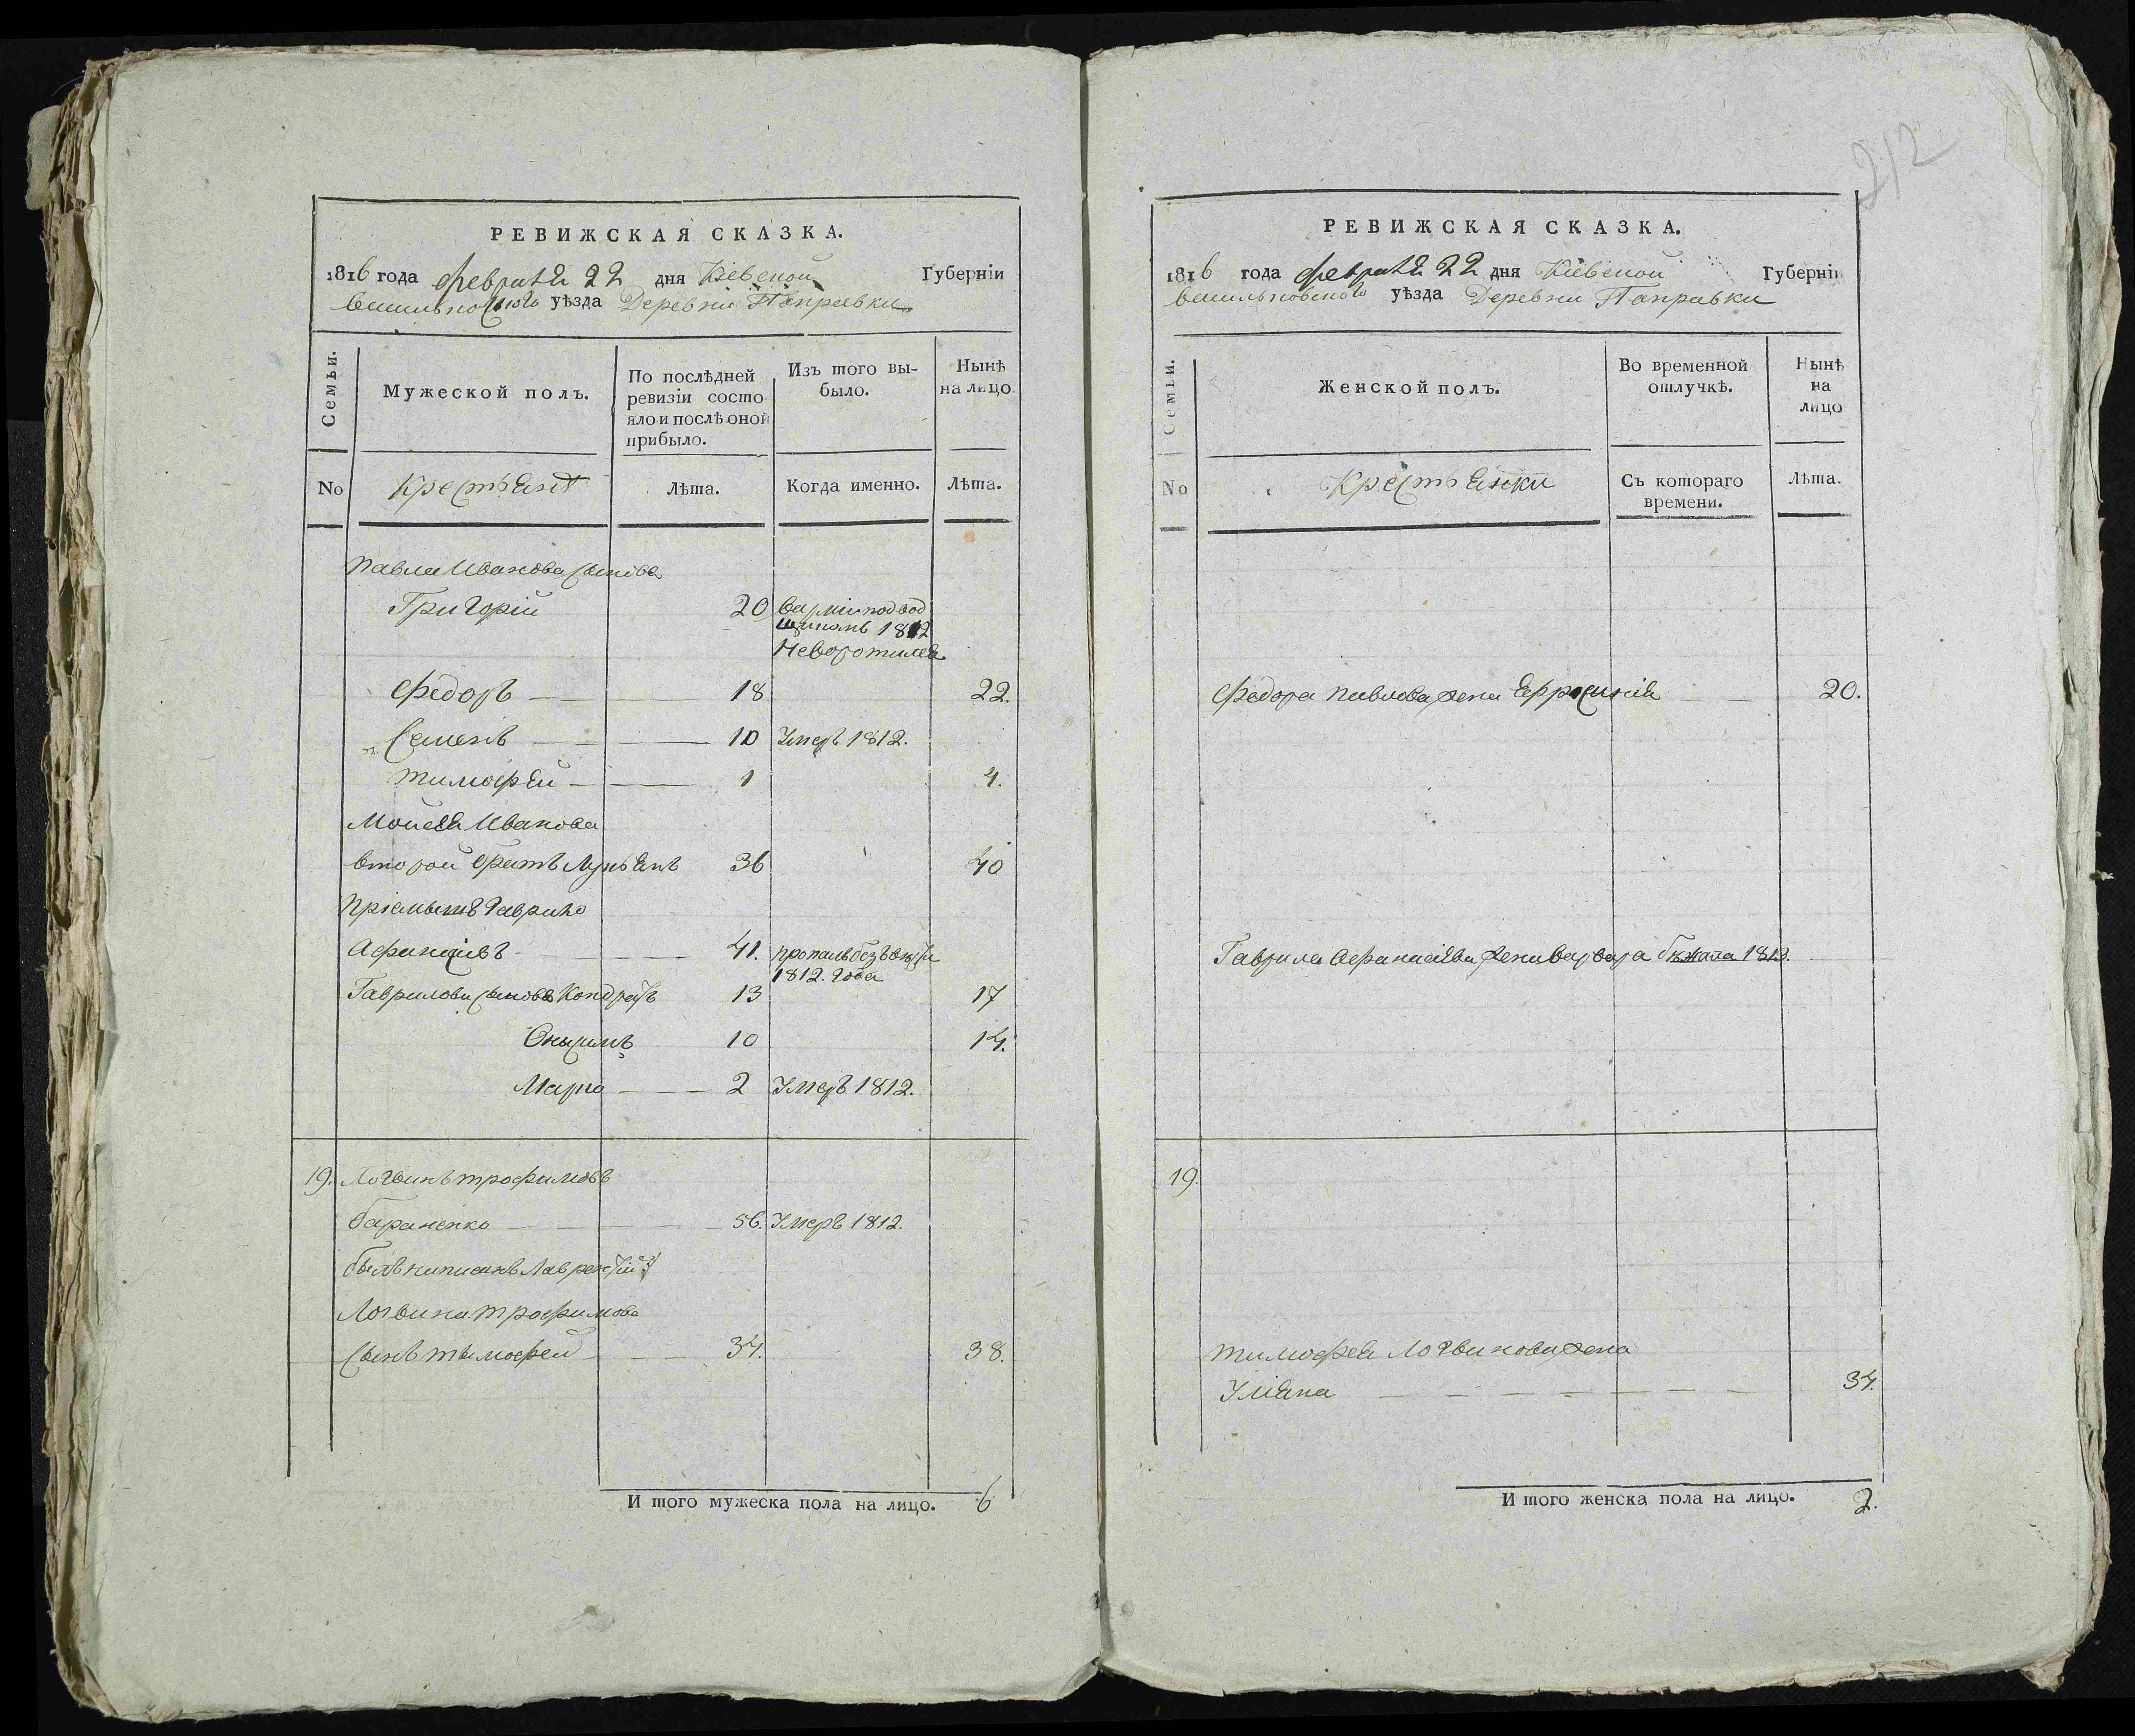 212
РЕВИЖСКАЯ СКАЗКА.
1816 года февраля 22 дня Кіевской Губерніи
васильковского уѣзда Деревни Паправки
Семьи.
Мужеской полъ.
По послѣдней ревизіи состояло и послѣ оной прибыло.
Изъ того выбыло.
Нынѣ на лицо.
No
Крестьянъ
Лѣта.
Когда именно.
Лѣта.
Павла Иванова сынове
Григорій 20 в арміи подвод
щикомъ 1812
Неворотился
Федоръ 18 22.
Семенъ 10 Умеръ 1812.
тимофей 1 4.
Мойсея Иванова
второй братъ Лукьянъ 36 40
пріемышъ Гаврило
Афанасіевъ 41. пропалъ безъ вести
1812. года
Гаврилови сынове Кондратъ 13 17
Онисимъ 10 14.
Марко 2 Умеръ 1812.
19. Логвинъ трофимовъ
бараненко 56. Умеръ 1812.
былъ написанъ Лаврентій
Логвина трофимова
сынъ тымофей 34. 38.
И того мужеска пола на лицо. 6
РЕВИЖСКАЯ СКАЗКА.
1816 года февраля 22 дня Кіевской Губерніи
васильковского уѣзда Деревни Паправки
Семьи.
Женской полъ.
Во временной отлучкѣ.
Нынѣ на лицо
No
Крестьянки
Съ котораго времени.
Лѣта.
Федора павлова жена Ефросинія 20.
Гаврила Афанасіева жена Варвара бежала 1813.
19.
тимофея Логвинова жена
Уліяна 34.
И того женска пола на лицо. 2.